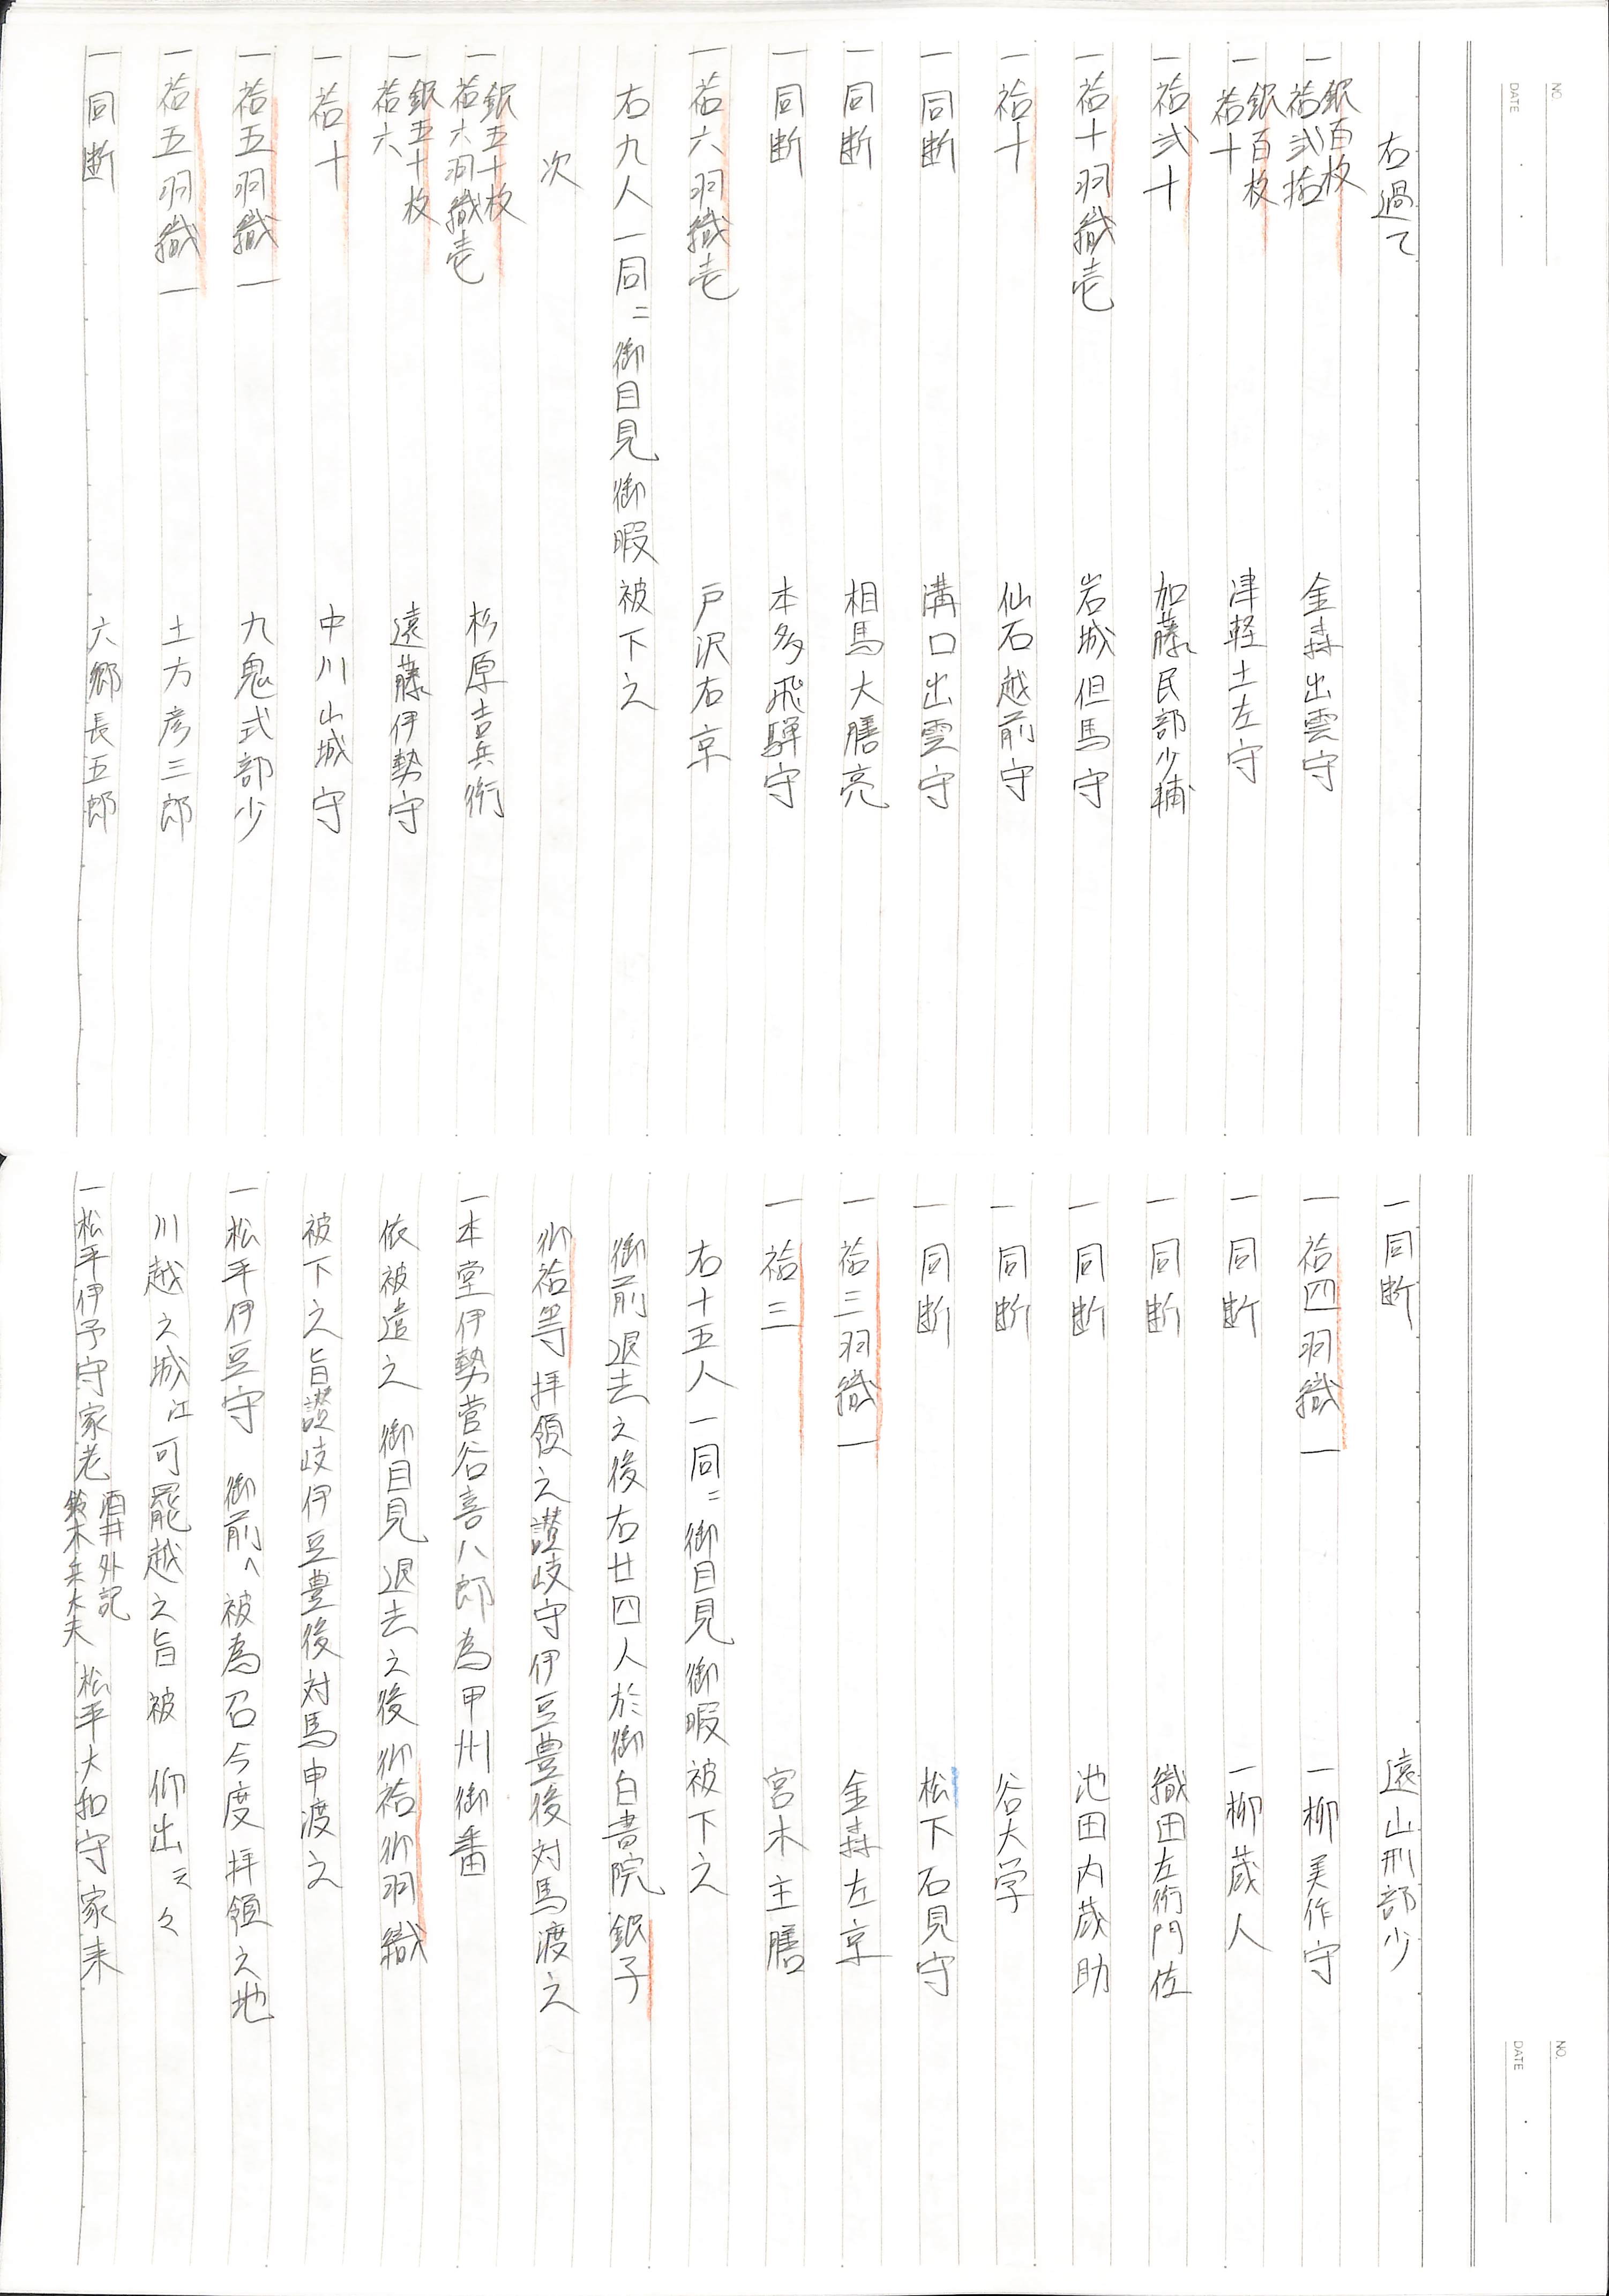 NO.
DATE
右過て
一 銀百枚 袷弐拾 金森出雲守
一 銀百枚 袷十 津軽土左守
一 袷弐十 加藤民部少輔
一 袷十羽織壱 岩城但馬守
一 袷十 仙石越前守
一 同断 溝口出雲守
一 同断 相馬大膳亮
一 同断 本多飛騨守
一 袷六羽織壱 戸沢右京
右九人一同ニ御目見御暇被下之
次
一 銀五十枚 袷六羽織壱 杉原吉兵衛
一 銀五十枚 袷六 遠藤伊勢守
一 袷十 中川山城守
一 袷五羽織一 九鬼式部少
一 袷五羽織一 土方彦三郎
一 同断 六郷長五郎
NO.
DATE
一 同断 遠山刑部少
一 袷四羽織一 一柳美作守
一 同断 一柳蔵人
一 同断 織田左衛門佐
一 同断 池田内蔵助
一 同断 谷大学
一 同断 松下石見守
一 袷三羽織一 金森左京
一 袷三 宮木主膳
右十五人一同ニ御目見御暇被下之
御前退去之後右廿四人於御白書院銀子
御袷等拝領之讃岐守伊豆豊後対馬渡之
一本堂伊勢菅谷喜八郎為甲州御番
依被遣之 御目見退去之後御袷御羽織
被下之旨讃岐伊豆豊後対馬申渡之
一松平伊豆守 御前へ被為召今度拝領之地
川越之城江可罷越之旨被 仰出云々
一松平伊予守家老 酒井外記 鈴木兵太夫 松平大和守家来